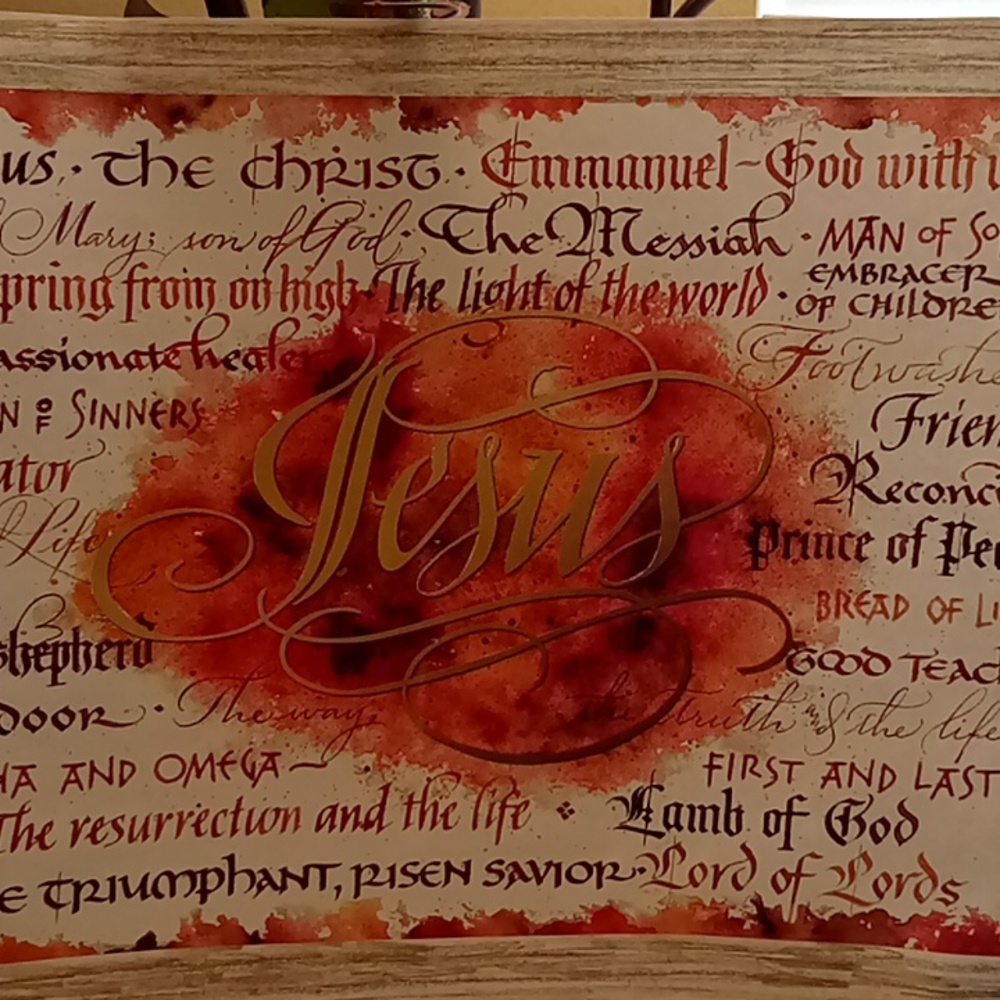 us · The Christ · Emmanuel ~ God with u
Mary; son of God · The Messiah · MAN OF So
pring from on high · The light of the world · EMBRACER OF CHILDRE
assionate healer Footwashe
N OF SINNERS Frien
ator Reconci
Life Prince of Pea
BREAD OF LI
shepherd GOOD TEAC
DOOR · The way, the truth & the life
HA AND OMEGA ~ FIRST AND LAST
The resurrection and the life Lamb of God
E TRIUMPHANT, RISEN SAVIOR · Lord of Lords
Jesus